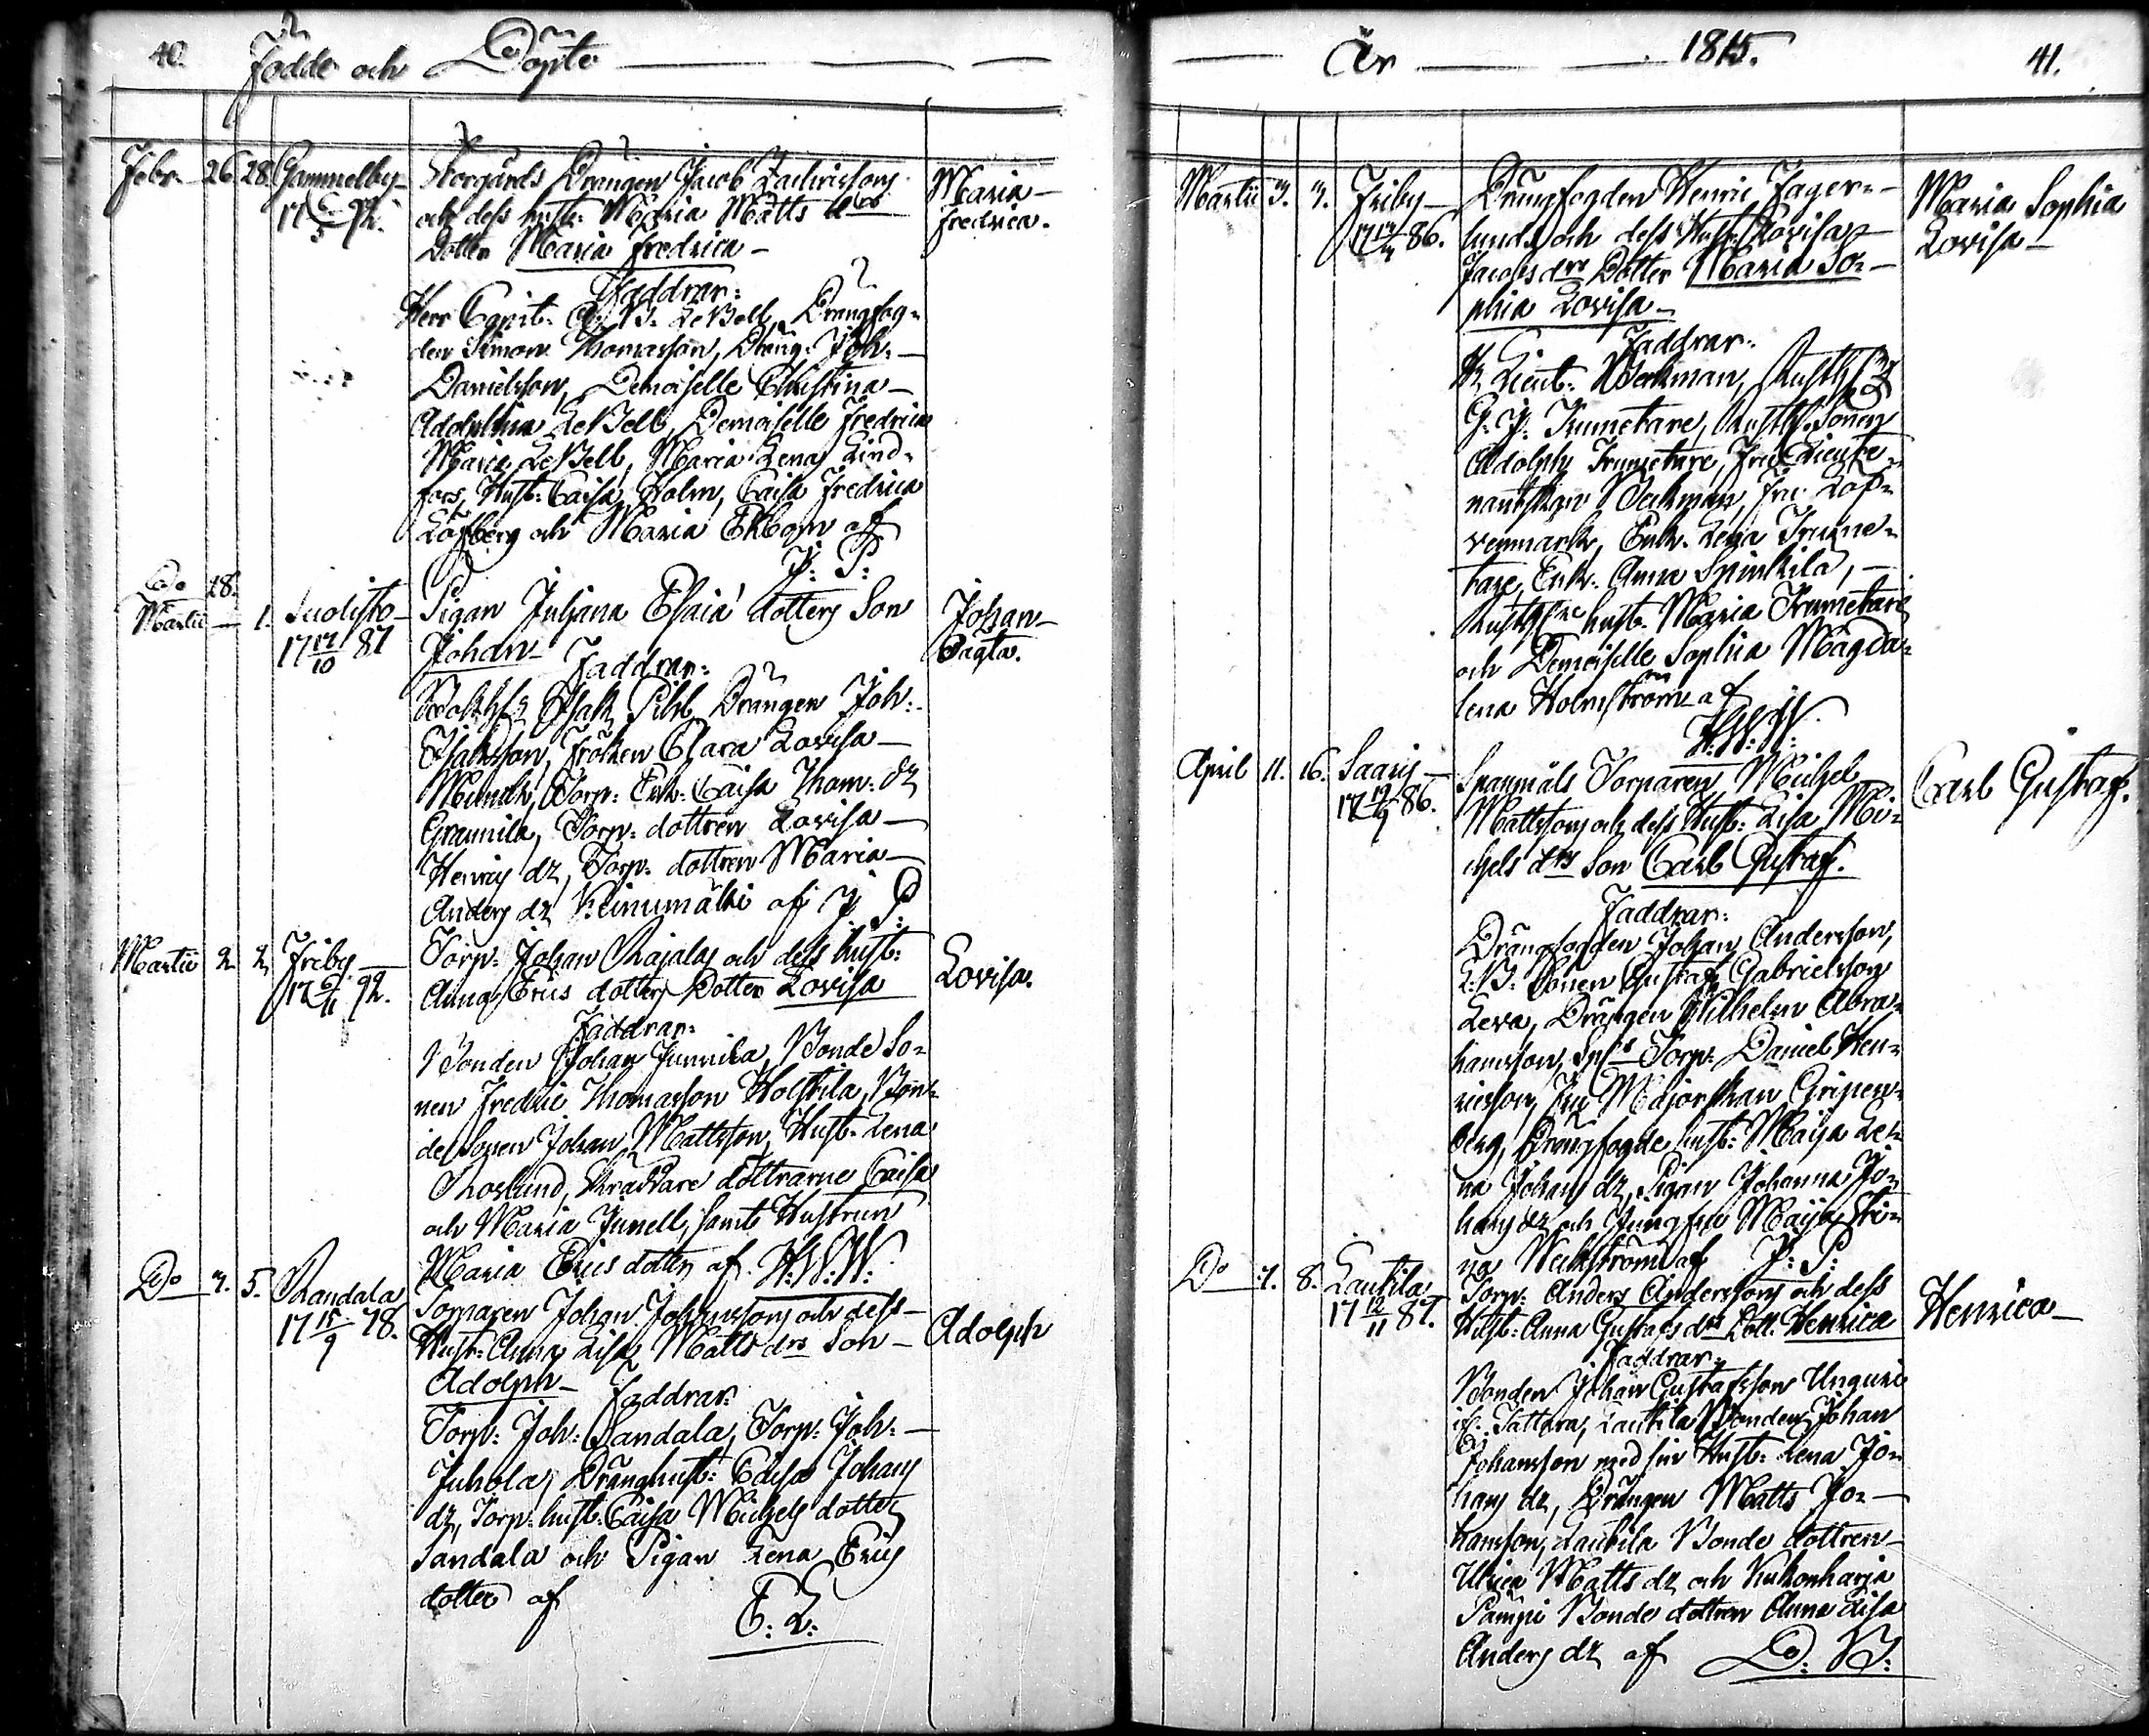 40. Födde och Döpte
Febr. 26 28. Gammelby Storgårds Drängen Jacob Zachrissons Maria
17 6/5 92. och dess hust. Maria Matts drs fredrica.
Dotter Maria Fredrica
Faddrar:
Herr Capit. A. B. LeBell, Drängfog-
den Simon Thomasson, Dräng. Joh:
Danielsson, Demoiselle Christina
Adolphina LeBell, Demoiselle Fredrica
Maria LeBell, Maria Lena Lind-
fors, Hust: Caisa Holm, Caisa Fredrica
Löfberg och Maria Ekbom af
J: P:
Do 28.
Martii 1. Suolisto Pigan Juljana Esaiä dotters Son Johan
17 17/10 87 Johan Oägta.
Faddrar:
Isak Pihl, Drängen Joh:
Isaksson, Fröken Clara Lovisa
Munck, Torp: Enk: Caisa Thom: dr
Grannila, Torp: dottren Lovisa
Henrics dr, Torp: dottren Maria
Anders dr Keinumäki af J P
Martii 2 2 Friby Torp: Johan Rajalas och dess hust: Lovisa.
17 6/11 92. Anna Erics dotters Dotter Lovisa
Faddrar:
Bonden Johan Junnila, Bonde So-
nen Fredric Thomasson Holstila, Bon-
de Sonen Johan Mattsson, Hust: Lena
Roslund, Skräddare döttrarne Caisa
och Maria Junell, samt Hustrun
Maria Erics dotter af H:W:W:
Do 4. 5. Randala Torparen Johan Johanssons och dess Adolph
17 15/9 78. Hust: Anna Lisa Matts drs Son
Adolph
Faddrar:
Torp: Joh: Sandala, Torp: Joh:
Juhola, Dränghust: Edisa Johans
dr, Torp: hust: Caisa Michels dotter
Sandala och Pigan Lena Erics
dotter af E: L:
År 1815. 41.
Martii 3. 3. Friby Drängfogden Henric Fager- Maria Sophia
86. lunds och dess Hust: Lovisa Lovisa
Jacobs drs Dotter Maria So-
phia Lovisa
Faddrar:
Hr Lieut: Weckman, Rusth:
G. J. Trumetare, Rusth. Sonen
Adolph Trumetare, Fru Lieute-
nantskan Weckman, Fru Löf-
venmark, Enk. Lena Trume-
tare, Enk. Anna Spinkila,
hust: Maria Trumetare
och Demoiselle Sophia Magda-
lena Holmström af
H:W:W:
April 11. 16. Saaris Spanmåls Torparen Michel Carl Gustaf.
17 19/9 86. Mattssons och dess Hust: Lisa Mi-
chels drs Son Carl Gustaf.
Faddrar:
Drängfogden Johan Andersson,
L:B: Sonen Gustaf Gabrielsson
Leva, Drängen Wilhelm Abra-
hamsson, Torp: Daniel Hen-
ricsson, Fru Majorskan Gripen-
berg, Drängfogde hust: Maija Le-
na Johans dr, Pigan Johanna Jo-
hans dr och Jungfru Maija Sti-
na Weckström af J: P:
Do 7. 8. Lautila Torp: Anders Anderssons och dess Henrica
17 12/11 87. Hust: Anna Gustafs drs Dott. Henrica
Faddrar:
Bonden Johan Gustafsson Unguri
if. Tattara, Lautila Bonden Johan
Johansson med sin Hust: Lena Jo-
hans dr, Drängen Matts Jo-
hansson, Lautila Bonde dottren
Ulrica Matts dr och Kukonharja
Pämpi Bonde dottren Anna Lisa
Anders dr af D: B: